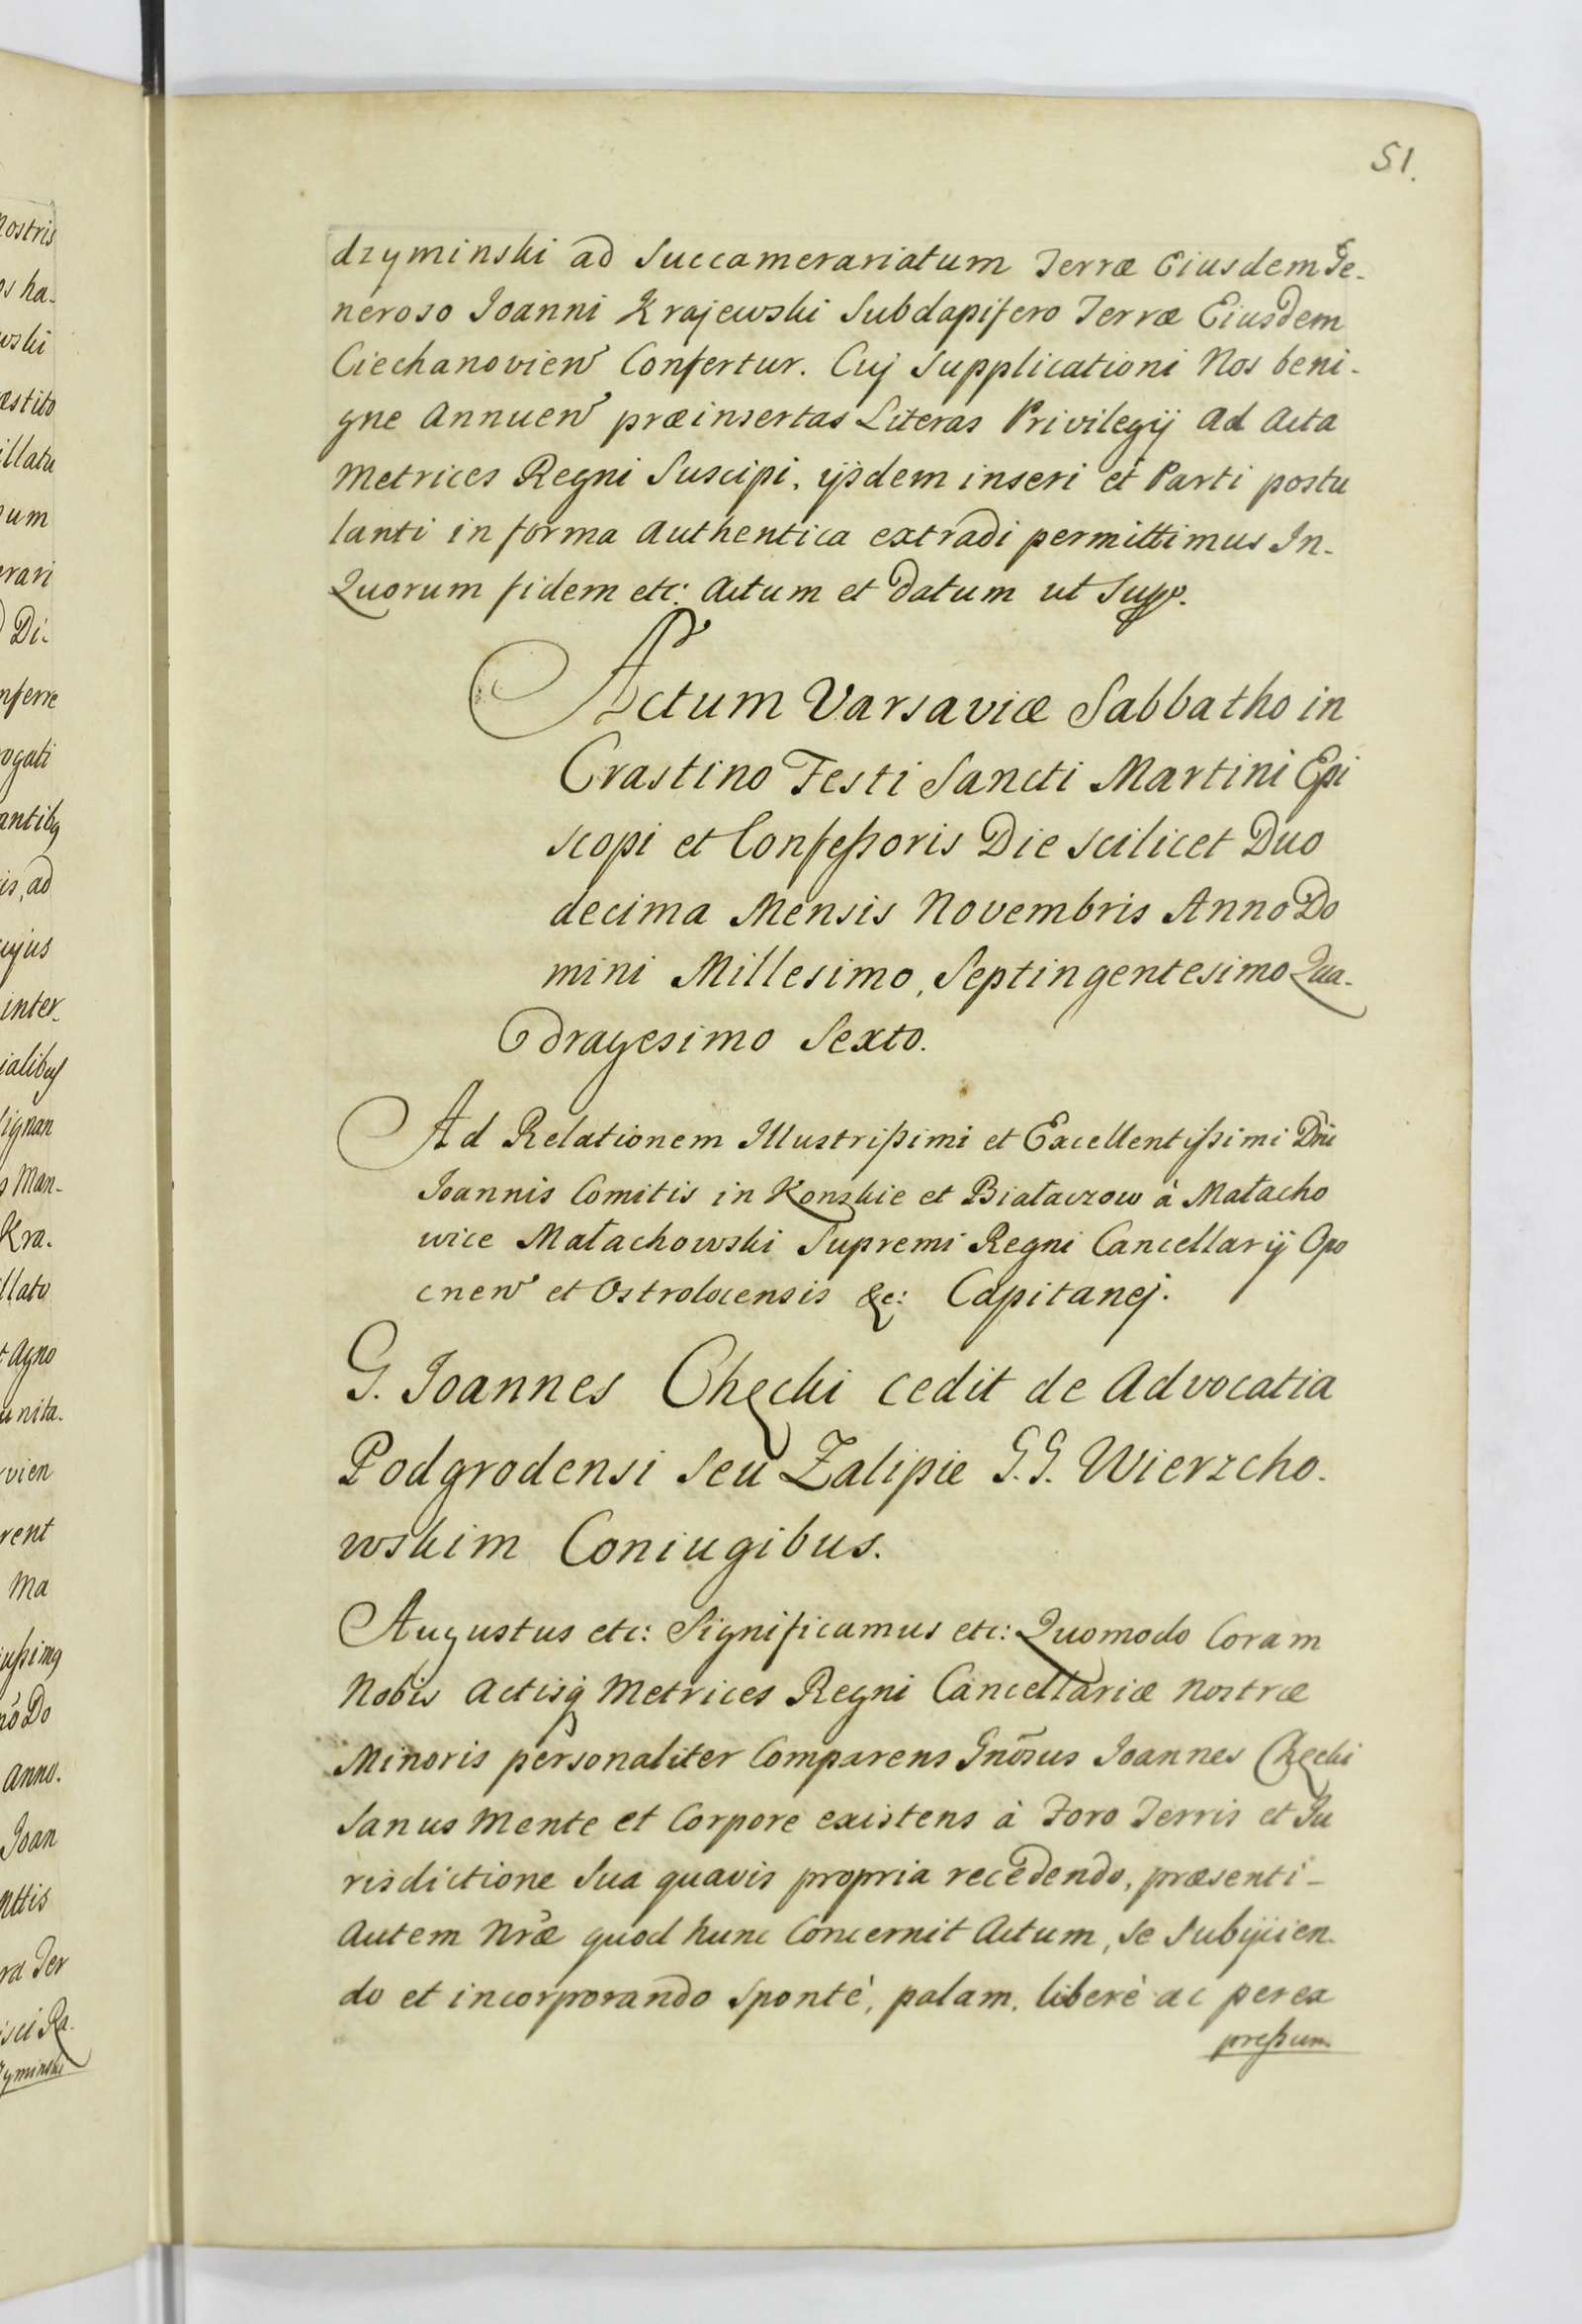 51.
dzyminski ad Succamerariatum Terræ Eiusdem Ge-
neroso Joanni Krajewski Subdapifero Terræ Eiusdem
Ciechanovien Confertur. Cuj Supplicationi Nos beni-
gne Annuen præinsertas Literas Privilegij Ad Acta
Metrices Regni Suscipi, ijsdem inseri et Parti postu
lanti in forma Authentica extradi permittimus In-
Quorum fidem etc: Actum et Datum ut Supp.
Actum Varsaviæ Sabbatho in
Crastino Festi Sancti Martini Epi
scopi et Confeßoris Die scilicet Duo
decima Mensis Novembris Anno Do
mini Millesimo, Septingentesimo Qua-
dragesimo Sexto.
Ad Relationem Illustrißimi et Excellentißimi Dni
Joannis Comitis in Konskie et Białaczow à Małacho
wice Małachowski Supremi Regni Cancellarij Opo
cnen et Ostrolocensis &c: Capitanej.
G. Joannes Chęcki cedit de Advocatia
Podgrodensi seu Zalipie G.G. Wierzcho-
wskim Coniugibus.
Augustus etc: Significamus etc: Quomodo Coram
Nobis Actisq Metrices Regni Cancellariæ Nostræ
Minoris personaliter Comparens Gnosus Joannes Chęcki
Sanus Mente et Corpore existens à Foro Terris et Ju
risdictione Sua quavis propria recedendo, præsenti-
Autem Nræ quod hunc Concernit Actum, se Subijcien-
do et incorporando Sponte, palam, liberè ac per ex
preßum
nostris
ha-
wski
æstito
illatu
um
Di-
nferre
rogati
is, ad
cujus
inter-
Man-
Kra-
llato
nita-
vien
rent
Ma
Anno.
Joan
Ter
Ra-